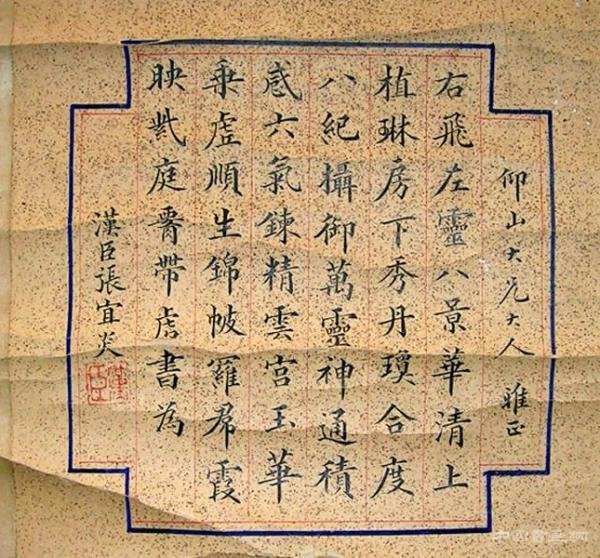 仰山大兄大人 雅正
右飛左靈八景華清上
植琳房下秀丹瓊合度
八紀攝御萬靈神通積
感六氣鍊精雲宮玉華
乘虛順生錦帔羅帬霞
映紫庭霄帶虎書為
漢臣張宜炎